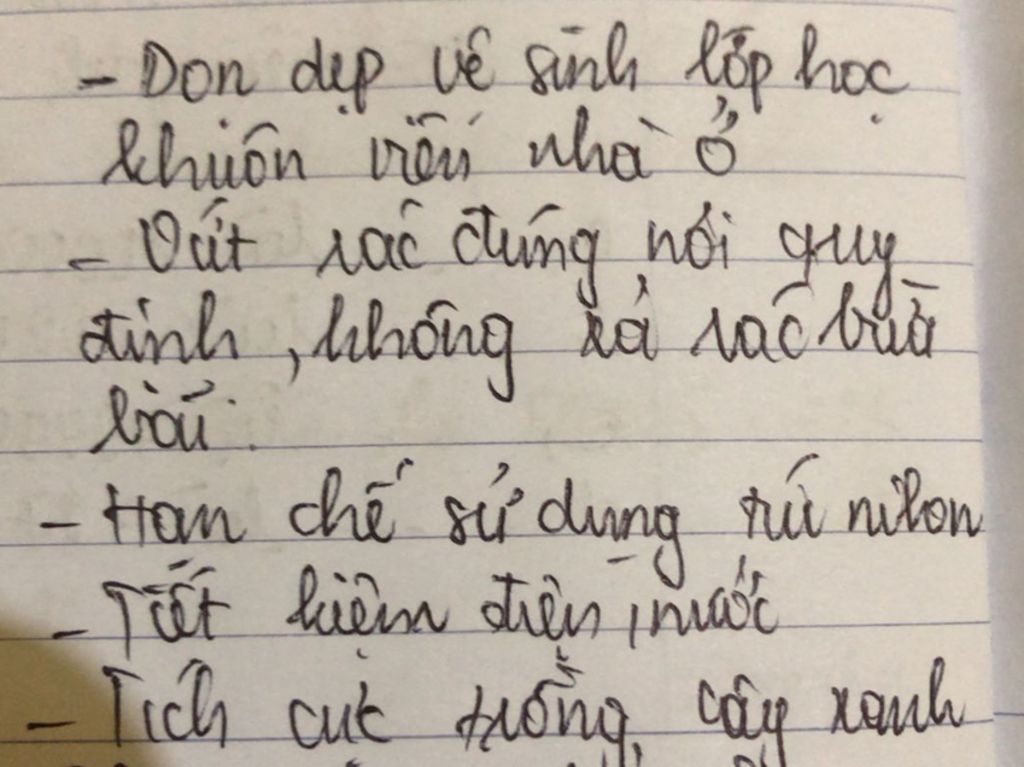 - Dọn dẹp vê sinh lớp học
khuôn viên nhà ở
- Vứt rác đúng nơi quy
định, không xả rác bừa
bãi.
- Hạn chế sử dụng túi nilon
- Tiết kiệm điện, nước
- Tích cực trồng cây xanh